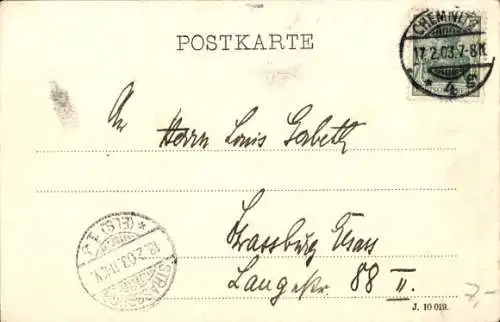 POSTKARTE
CHEMNITZ
17.2.03.7-8N.
* 4 S
An Herrn Louis
Strassburg Elsass
Langestr. 88 II.
STRASSBURG
(ELS) 1 *
18.2.03.
7,-
J. 10 019.